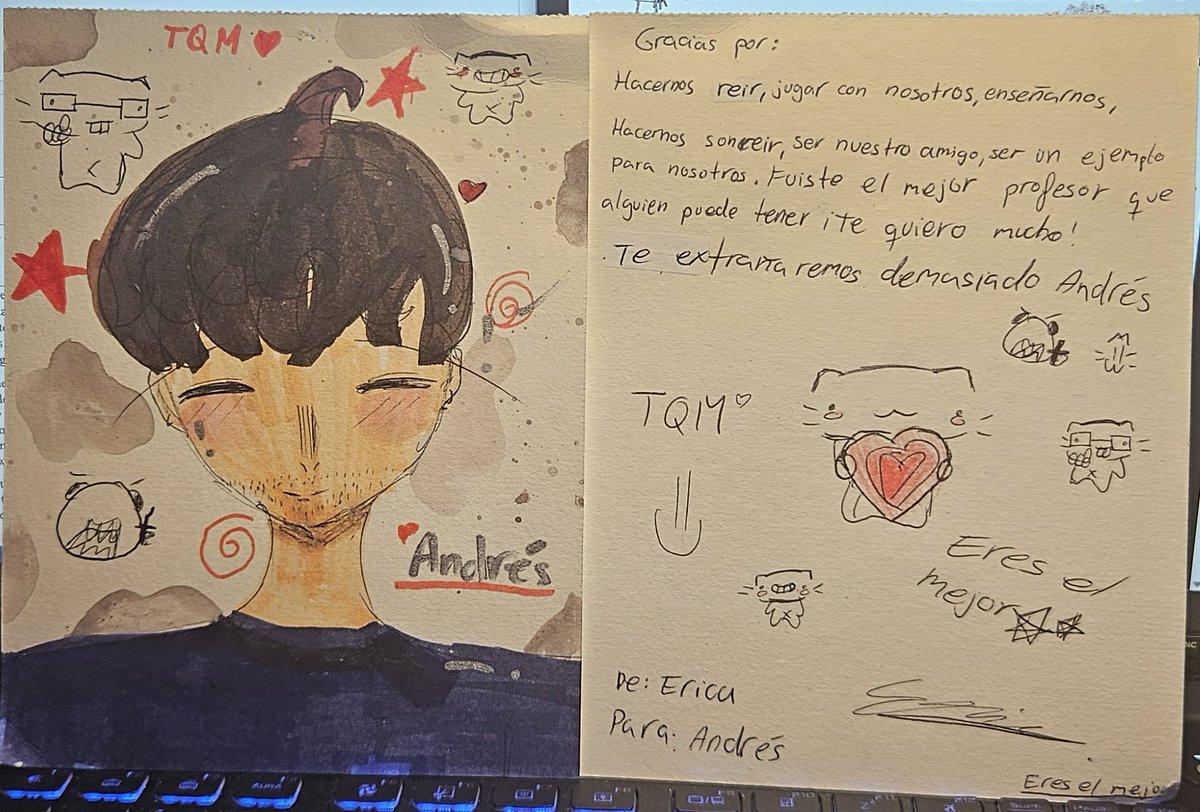 TQM
Andrés
Gracias por:
Hacernos reir, jugar con nosotros, enseñarnos,
Hacernos sonreir, ser nuestro amigo, ser un ejemplo
para nosotros. Fuiste el mejor profesor que
alguien puede tener ¡Te quiero mucho!
Te extrañaremos demasiado Andrés
TQM
Eres el
mejor
De: Erica
Para: Andrés
Eres el mejor